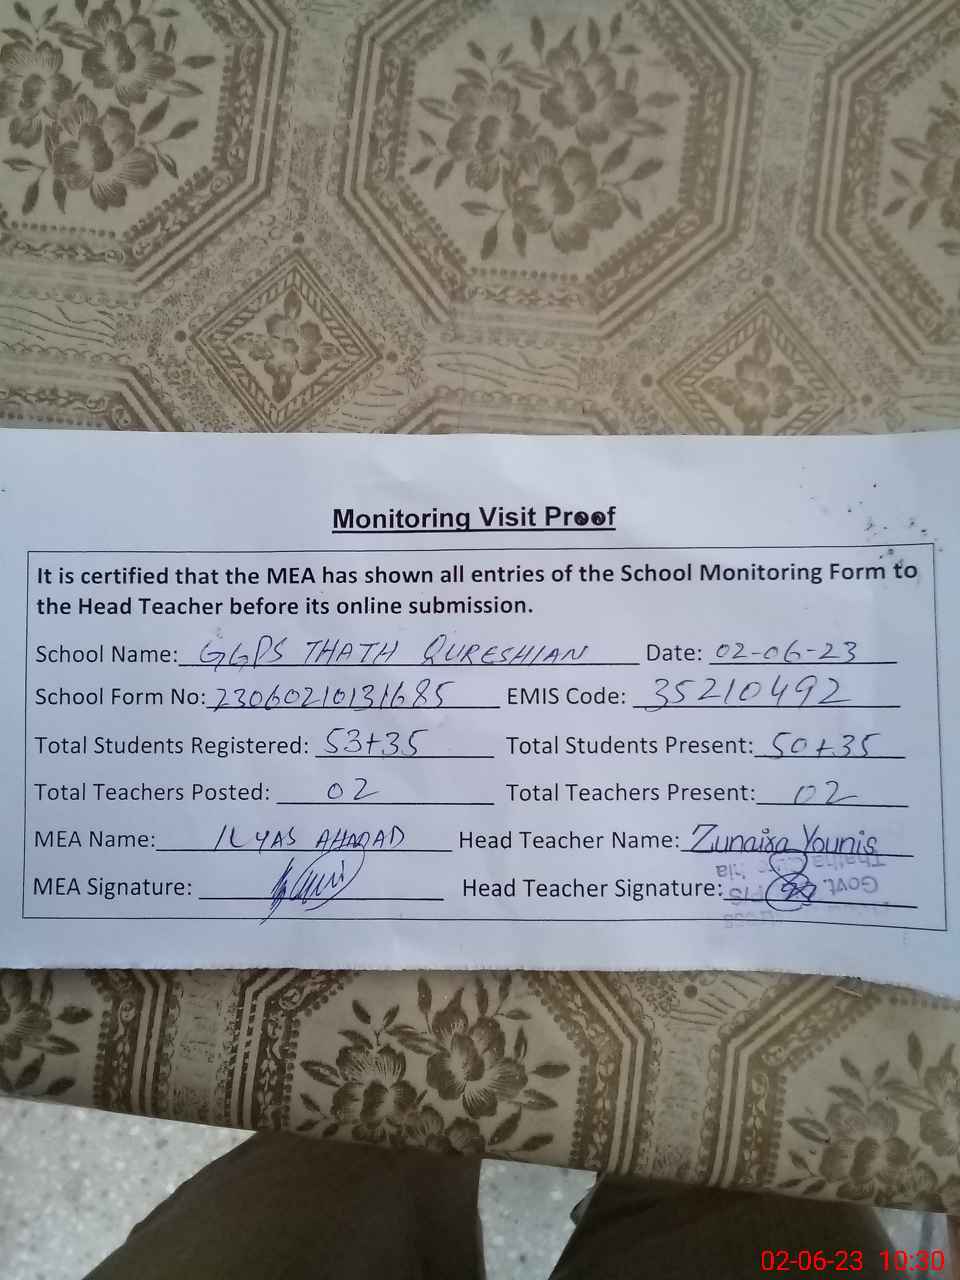 Monitoring Visit Proof
It is certified that the MEA has shown all entries of the School Monitoring Form to
the Head Teacher before its online submission.
School Name: GGPS THATH QURESHIAN Date: 02-06-23
School Form No: 23060210131685 EMIS Code: 35210492
Total Students Registered: 53+35 Total Students Present: 50+35
Total Teachers Posted: 02 Total Teachers Present: 02
MEA Name: ILYAS AHMAD Head Teacher Name: Zunaira Younis
MEA Signature: Head Teacher Signature:
Govt.
02-06-23 10:30